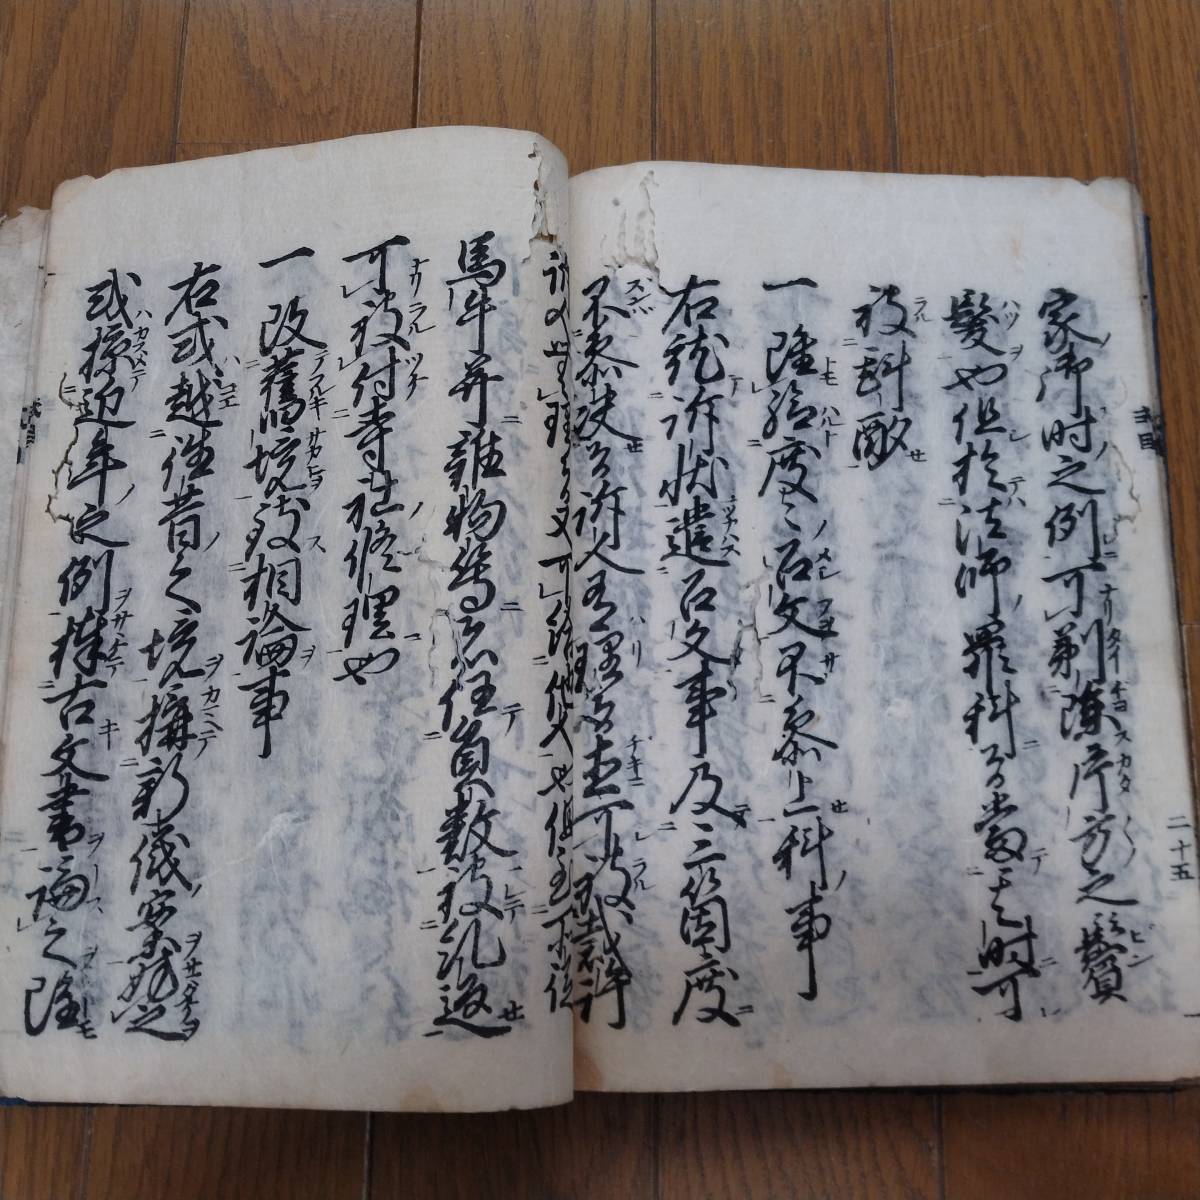 家御時之例可剃除片方之鬢
髪也但於法師罪科者當于其時可
被斟酌
一 雖給度々召文不參上科事
右就訴状遣召文事及三箇度
不參决者訴人有理者直可被裁許
訴人無理者又可給他人也但至所従
馬牛并雜物等者任員數被糺返
可被付寺社修理也
一 改舊境致相論事
右或越徃昔之境搆新儀案妨之
或掠近年之例捧古文書論之雖
式目
二十五